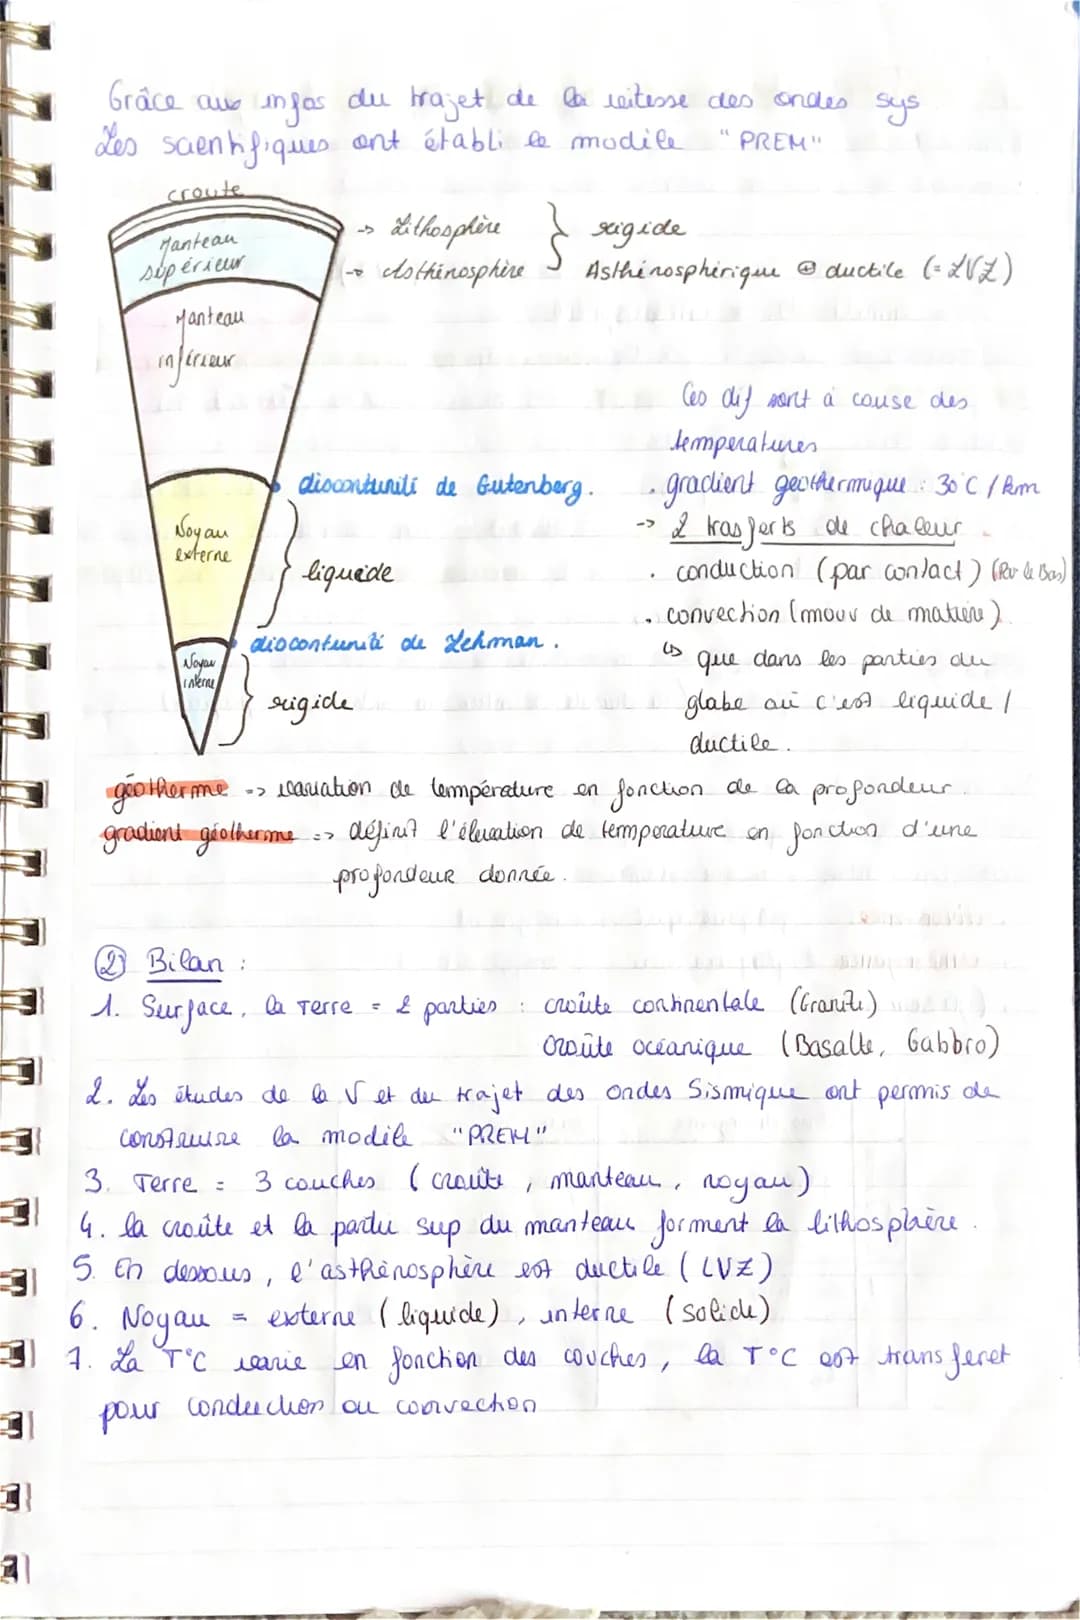 Grâce aux infos du trajet de la vitesse des ondes sys
Les scientifiques ont établi le modèle "PREM"
croute
Manteau
supérieur
-> Lithosphère } rigide
-> Asthénosphère Asthénosphérique ductile (= LVZ)
Manteau
inférieur
Ces dif sont à cause des
temperatures
discontunité de Gutenberg.
. gradient geothermique : 30°C / km
-> 2 trasferts de chaleur
Noyau
externe
liquide
. conduction (par contact) (Par le Bas)
. convection (mouv de matière)
↳ que dans les parties du
globe où c'est liquide /
ductile.
discontunité de Lehman.
Noyau
interne
rigide
géotherme => variation de température en fonction de la profondeur.
gradient géotherme => définit l'élévation de temperature en fonction d'une
profondeur donnée.
② Bilan :
1. Surface, la Terre = 2 parties : croûte continentale (Granite)
croûte océanique (Basalte, Gabbro)
2. Les études de la V et du trajet des ondes Sismique ont permis de
construire la modèle "PREM"
3. Terre = 3 couches (croûte, manteau, noyau)
4. la croûte et la partie sup du manteau forment la lithosphère.
5. En dessous, l'asthénosphère est ductile (LVZ)
6. Noyau = externe (liquide), interne (solide)
7. La T°C varie en fonction des couches, la T°C est transferet
pour conduction ou convection